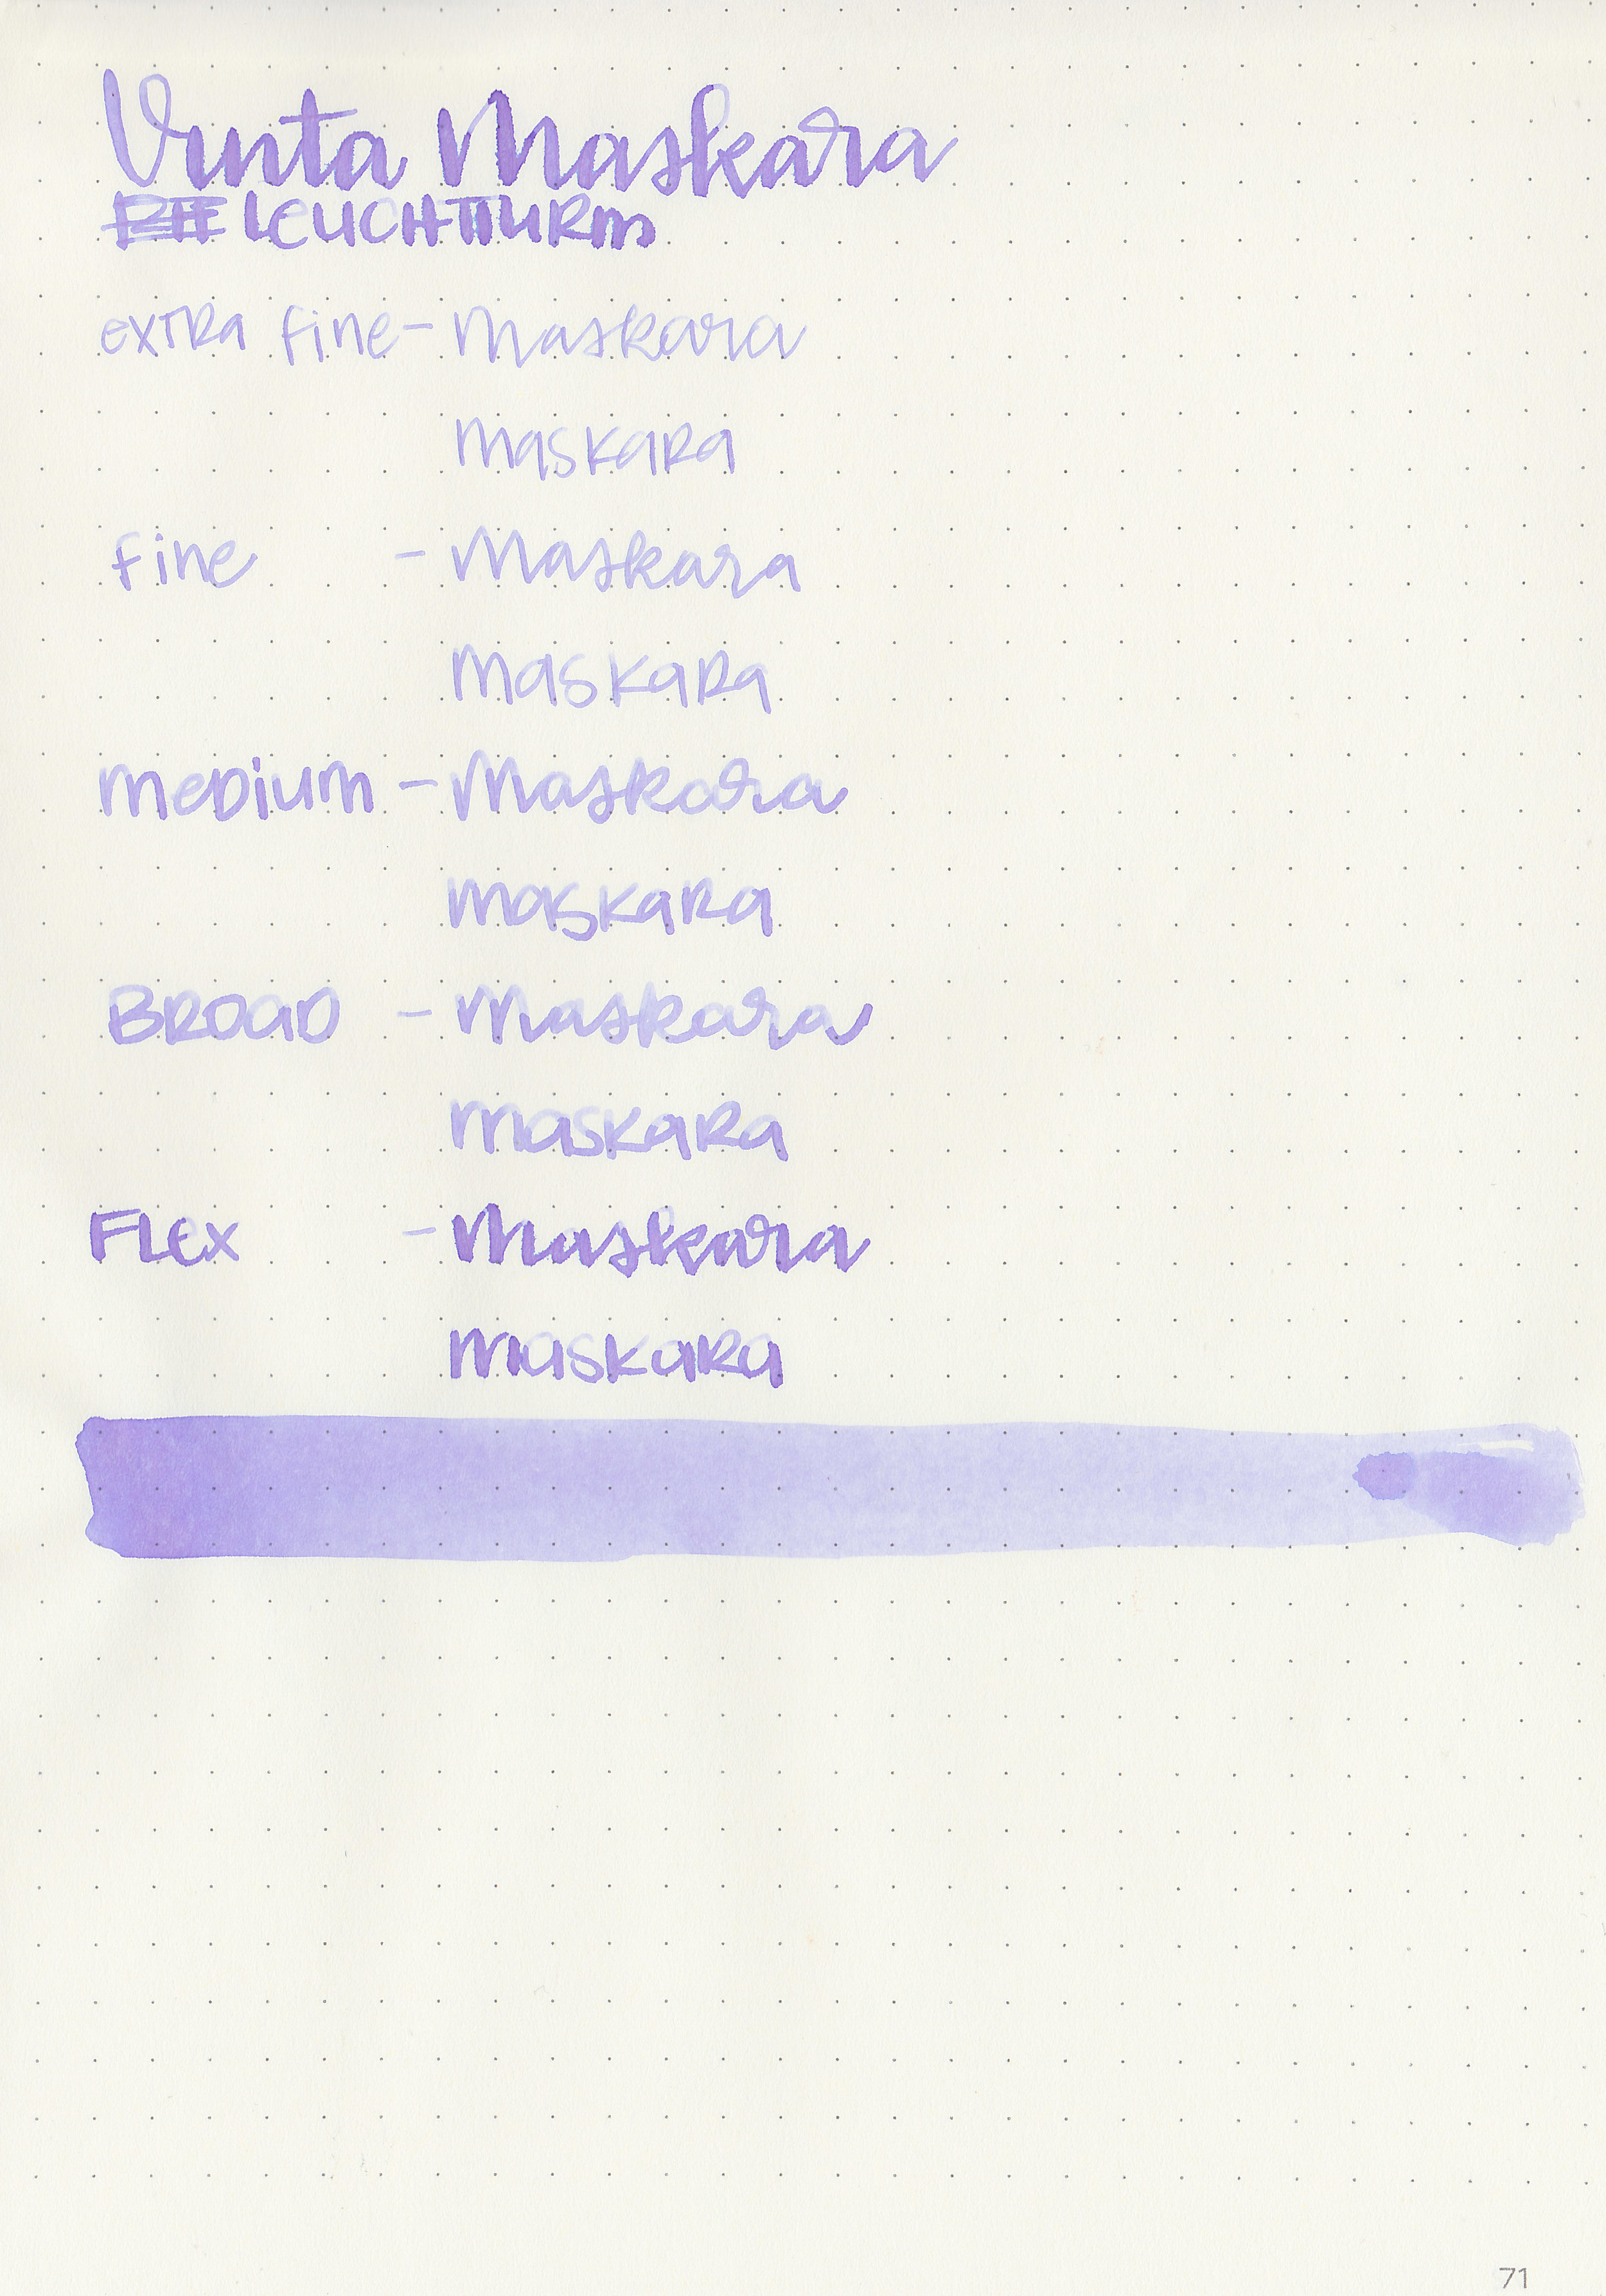 Vinta Maskara
LEUCHTTURM
extra fine - Maskara
maskara
fine - Maskara
maskara
medium - Maskara
maskara
BROAD - Maskara
maskara
FLEX - Maskara
maskara
71